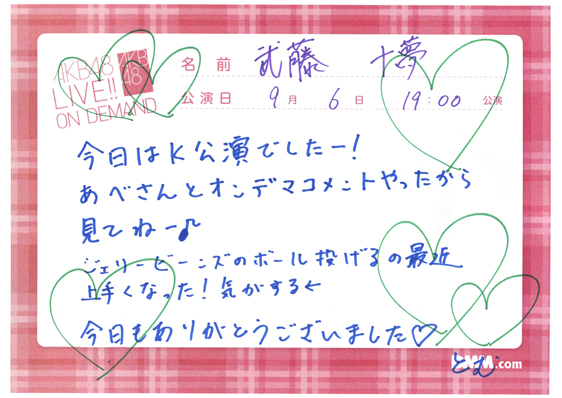 AKB48
LIVE!!
ON DEMAND
AKB
48
名前 武藤 十夢
公演日 9月 6日 19:00 公演
今日はK公演でしたー!
あべさんとオンデマコメントやったから
見てねー♪
ジェリービーンズのボール投げるの最近
上手くなった!気がする←
今日もありがとうございました♡
とむ
.com